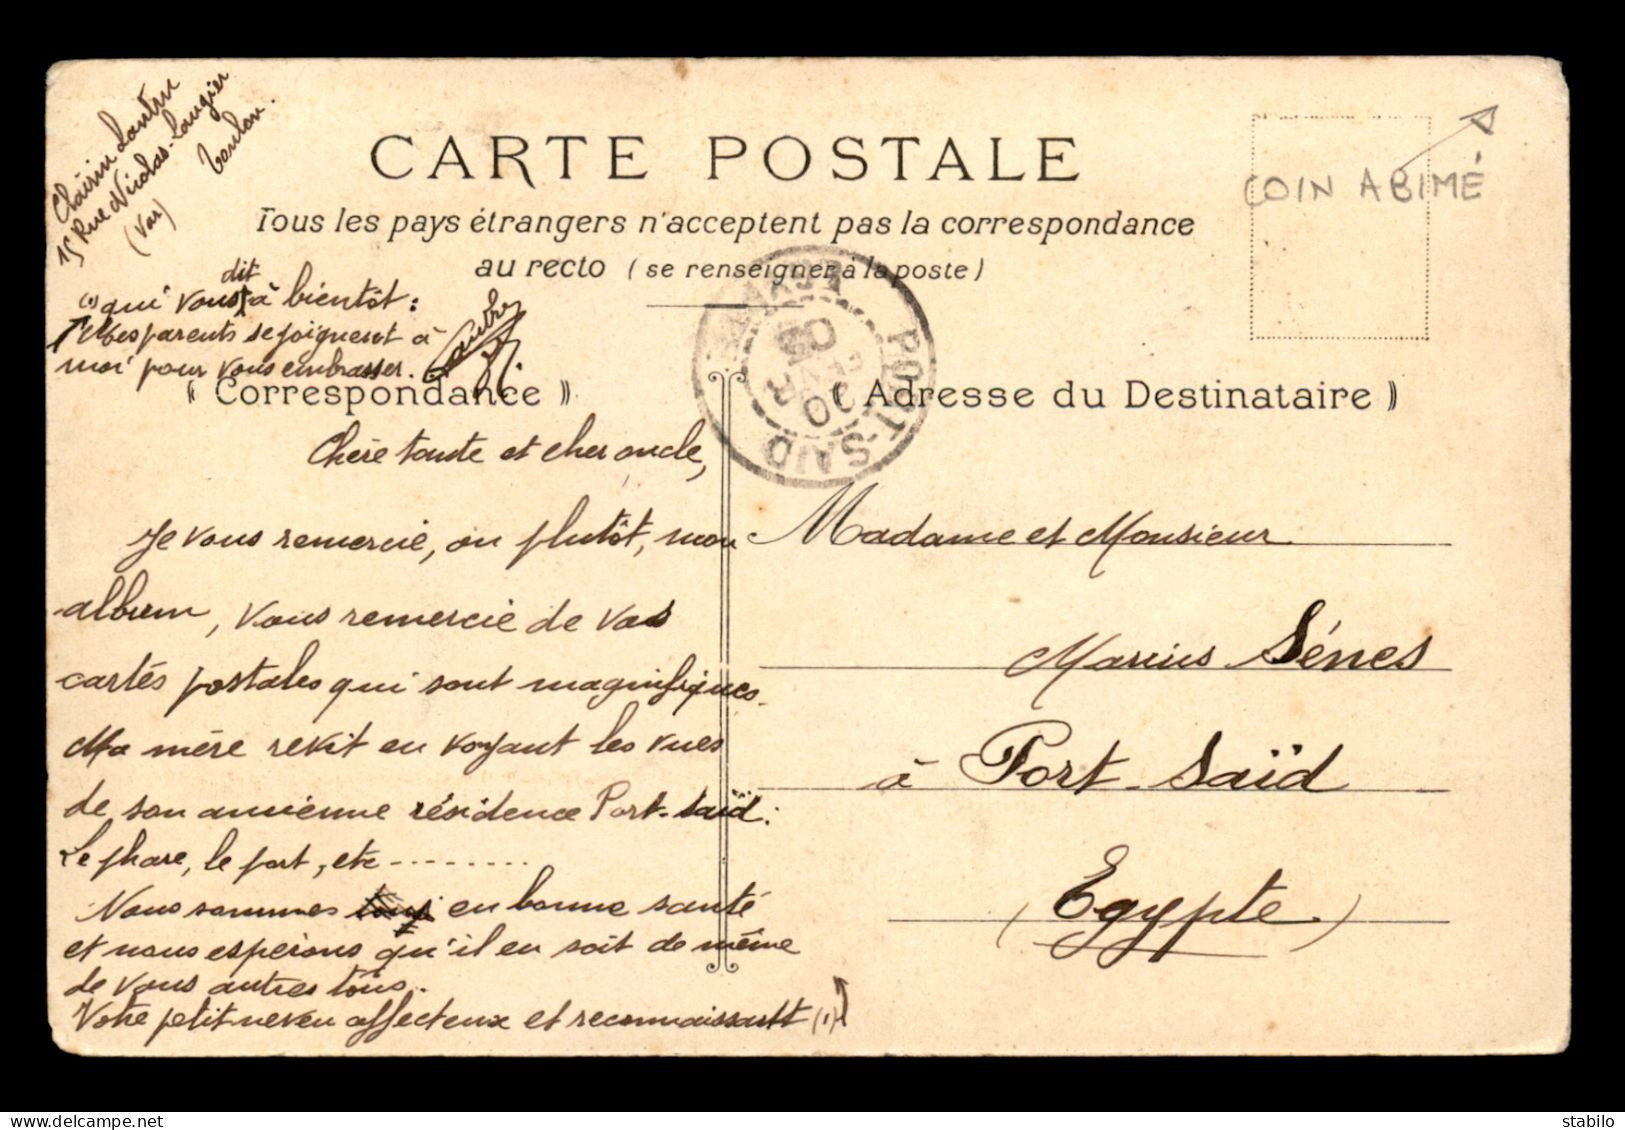 15 Rue Nicolas-Laugier
Toulon.
(Var)
CARTE POSTALE
Tous les pays étrangers n'acceptent pas la correspondance
au recto (se renseigner à la poste)
COIN ABIMÉ
PORT-SAID
dit
(1) qui vous à bientôt :
Mes parents se joignent à
moi pour vous embrasser.
« Correspondance »
« Adresse du Destinataire »
Chère tante et cher oncle,
Je vous remercie, ou plutôt, mon
album, vous remercie de vos
cartes postales qui sont magnifiques.
Ma mère revit en voyant les vues
de son ancienne résidence Port-Saïd :
Le phare, le port, etc --------
Nous sommes en bonne santé
et nous espérons qu'il en soit de même
de vous autres tous.
Votre petit neveu affectueux et reconnaissant (1)
Madame et Monsieur
Marius Sénes
à Port-Saïd
(Egypte)
stabilo